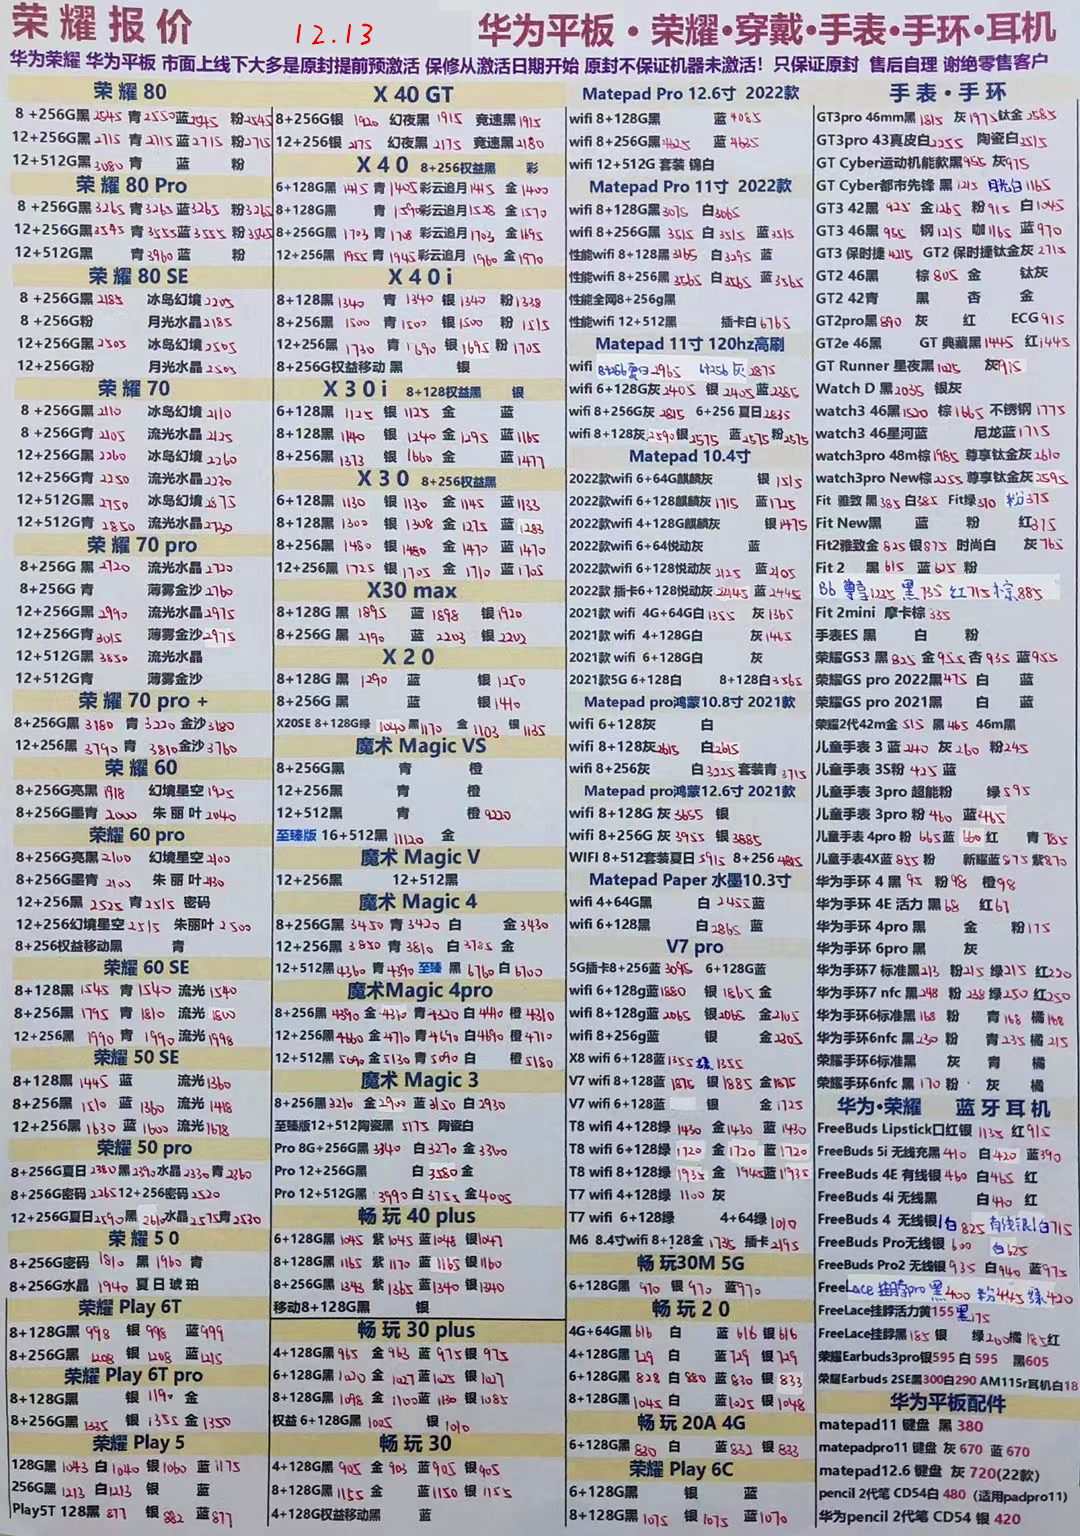 荣耀报价 12.13 华为平板·荣耀·穿戴·手表·手环·耳机
华为荣耀 华为平板 市面上线下大多是原封提前预激活 保修从激活日期开始 原封不保证机器未激活！只保证原封 售后自理 谢绝零售客户
荣耀80
8 +256G黑 2545 青 2550 蓝 2545 粉 2545
12+256G黑 2715 青 2715 蓝 2715 粉 2715
12+512G黑 3080 青 蓝 粉
荣耀 80 Pro
8 +256G黑 3265 青 3265 蓝 3265 粉 3265
12+256G黑 3545 青 3555 蓝 3555 粉 3545
12+512G黑 青 3960 蓝 粉
荣耀 80 SE
8 +256G黑 2185 冰岛幻境 2205
8 +256G粉 月光水晶 2185
12+256G黑 2505 冰岛幻境 2505
12+256G粉 月光水晶 2505
荣耀 70
8 +256G黑 2110 冰岛幻境 2110
8 +256G青 2105 流光水晶 2125
12+256G黑 2260 冰岛幻境 2260
12+256G青 2250 流光水晶 2230
12+512G黑 2750 冰岛幻境 2875
12+512G青 2850 流光水晶 2730
荣耀 70 pro
8+256G黑 2720 流光水晶 2720
8+256G青 薄雾金沙 2760
12+256G黑 2990 流光水晶 2975
12+256G青 3015 薄雾金沙 2975
12+512G黑 3850 流光水晶
12+512G青 薄雾金沙
荣耀 70 pro +
8+256G黑 3180 青 3220 金沙 3180
12+256黑 3790 青 3810 金沙 3760
荣耀 60
8+256G亮黑 1918 幻境星空 1925
8+256G墨青 2000 朱丽叶 2040
荣耀 60 pro
8+256G亮黑 2100 幻境星空 2100
8+256G墨青 2100 朱丽叶 2130
12+256黑 2525 青 2515 密码
12+256幻境星空 2515 朱丽叶 2500
8+256权益移动黑 青
荣耀 60 SE
8+128黑 1545 青 1540 流光 1540
8+256黑 1795 青 1810 流光 1800
12+256黑 1990 青 1990 流光 1998
荣耀 50 SE
8+128黑 1445 蓝 流光 1360
8+256黑 1510 蓝 1360 流光 1418
12+256黑 1630 蓝 1600 流光 1618
荣耀 50 pro
8+256G夏日 2380 黑 2390 水晶 2330 青 2360
8+256G密码 2265 12+256密码 2520
12+256G夏日 2590 黑 2610 水晶 2575 青 2530
荣耀 5 0
8+256G密码 1810 黑 1960 青
8+256G水晶 1940 夏日琥珀
荣耀 Play 6T
8+128G黑 998 银 998 蓝 999
8+256G黑 1208 银 1208 蓝 1215
荣耀 Play 6T pro
8+128G黑 银 1190 金
8+256G黑 1335 银 1355 金 1350
荣耀 Play 5
128G黑 1043 白 1040 银 1060 蓝 1175
256G黑 1213 白 1213 银 蓝
Play5T 128黑 877 银 882 蓝 877
X 40 GT
8+256G银 1920 幻夜黑 1915 竞速黑 1915
12+256银 2175 幻夜黑 2175 竞速黑 2180
X 4 0 8+256权益黑 彩
6+128G黑 1415 青 1405 彩云追月 1415 金 1400
8+128G黑 青 1590 彩云追月 1528 金 1570
8+256G黑 1703 青 1708 彩云追月 1703 金 1695
12+256黑 1955 青 1945 彩云追月 1960 金 1970
X 4 0 i
8+128黑 1340 青 1340 银 1340 粉 1338
8+256黑 1500 青 1500 银 1500 粉 1515
12+256黑 1730 青 1690 银 1695 粉 1705
8+256G权益移动 黑 银
X 3 0 i 8+128权益黑 银
6+128黑 1125 银 1125 金 蓝
8+128黑 1140 银 1240 金 1295 蓝 1165
8+256黑 1373 银 1660 金 蓝 1477
X 3 0 8+256权益黑
6+128黑 1130 银 1130 金 1145 蓝 1133
8+128黑 1300 银 1308 金 1275 蓝 1283
8+256黑 1480 银 1480 金 1470 蓝 1470
12+256黑 1725 银 1705 金 1710 蓝 1705
X30 max
8+128G黑 1895 蓝 1898 银 1920
8+256G黑 2190 蓝 2203 银 2202
X 2 0
8+128G黑 1290 蓝 银 1250
8+256G黑 蓝 银 1410
X20SE 8+128G绿 1040 黑 1170 金 1103 银 1135
魔术 Magic VS
8+256G黑 青 橙
12+256黑 青 橙
12+512黑 青 橙 9220
至臻版 16+512黑 11120 金
魔术 Magic V
12+256黑 12+512黑
魔术 Magic 4
8+256G黑 3450 青 3420 白 金 3430
12+256黑 3850 青 3810 白 3785 金
12+512黑 4360 青 4390 至臻 黑 6760 白 6700
魔术Magic 4pro
8+256黑 4390 金 4310 青 4320 白 4440 橙 4310
12+256黑 4660 金 4710 青 4690 白 4690 橙 4710
12+512黑 5090 金 5130 青 5090 白 橙 5180
魔术 Magic 3
8+256黑 3210 金 2900 蓝 3150 白 2930
至臻版12+512陶瓷黑 5175 陶瓷白
Pro 8G+256G黑 3340 白 3270 金 3360
Pro 12+256G黑 白 3580 金
Pro 12+512G黑 3990 白 3755 金 4005
畅 玩 40 plus
6+128G黑 1045 紫 1045 蓝 1048 银 1047
8+128G黑 1165 紫 1170 蓝 1165 银 1160
8+256G黑 1343 紫 1365 蓝 1340 银 1340
移动8+128G黑 银
畅 玩 30 plus
4+128G黑 965 金 963 蓝 975 银 975
6+128G黑 1020 金 1027 蓝 1025 银 1027
8+128G黑 1098 金 1100 蓝 1130 银 1085
权益 6+128G黑 1025 银 1010
畅 玩 30
4+128G黑 905 金 903 蓝 905 银 905
8+128G黑 1155 金 蓝 1150 银 1155
4+128G权益移动黑 蓝
Matepad Pro 12.6寸 2022款
wifi 8+128G黑 蓝 4085
wifi 8+256G黑 4625 蓝 4625
wifi 12+512G 套装 锦白
Matepad Pro 11寸 2022款
wifi 8+128G黑 3075 白 3065
wifi 8+256G黑 3515 白 3515 蓝 3515
性能wifi 8+128黑 3165 白 3295 蓝
性能wifi 8+256黑 3565 白 3565 蓝 3565
性能全网8+256g黑
性能wifi 12+512黑 插卡白 6765
Matepad 11寸 120hz高刷
wifi 8+256夏日 2965 6+256 灰 2875
wifi 6+128G灰 2405 银 2405 蓝 2285
wifi 8+256G灰 2815 6+256 夏日 2835
wifi 8+128灰 2590 银 2575 蓝 2575 粉 2575
Matepad 10.4寸
2022款wifi 6+64G麒麟灰 银 1515
2022款wifi 6+128麒麟灰 1715 蓝 1725
2022款wifi 4+128G麒麟灰 银 1475
2022款wifi 6+64悦动灰 蓝
2022款wifi 6+128悦动灰 2125 蓝 2105
2022款 插卡6+128悦动灰 2245 蓝 2445
2021款wifi 4G+64G白 1355 灰 1365
2021款 wifi 4+128G白 灰 1465
2021款 wifi 6+128G白 灰
2021款5G 6+128白 8+128白 3565
Matepad pro鸿蒙10.8寸 2021款
wifi 6+128灰 白
wifi 8+128灰 2615 白 2615
wifi 8+256灰 白 3225 套装青 3715
Matepad pro鸿蒙12.6寸 2021款
wifi 8+128G 灰 3655 银
wifi 8+256G 灰 3955 银 3885
WIFI 8+512套装夏日 5915 8+256 4815
Matepad Paper 水墨10.3寸
wifi 4+64G黑 白 2455 蓝
wifi 6+128黑 白 2865 蓝
V7 pro
5G插卡8+256蓝 3095 6+128G蓝
wifi 6+128g蓝 1880 银 1865 金
wifi 8+128g蓝 2065 银 2065 金 2105
wifi 8+256g蓝 银 金 2305
X8 wifi 6+128蓝 1355 绿 1355
V7 wifi 8+128蓝 1875 银 1885 金 1875
V7 wifi 6+128蓝 银 金 1725
T8 wifi 4+128绿 1430 金 1430 蓝 1430
T8 wifi 6+128绿 1720 金 1720 蓝 1720
T8 wifi 8+128绿 1935 金 1945 蓝 1935
T7 wifi 4+128绿 1100 灰
T7 wifi 6+128绿 4+64绿 1010
M6 8.4寸wifi 8+128金 1735 插卡 2195
畅 玩30M 5G
6+128G黑 970 银 970 蓝 970
畅 玩 2 0
4G+64G黑 616 白 蓝 616 银 616
4+128G黑 729 白 蓝 729 银 729
6+128G黑 828 白 880 蓝 830 银 833
8+128G黑 1045 白 蓝 1025 银 1048
畅 玩 20A 4G
6+128G黑 830 白 蓝 832 银 833
荣耀 Play 6C
6+128G黑 银 蓝
8+128G黑 1075 银 1075 蓝 1070
手 表 · 手 环
GT3pro 46mm黑 1815 灰 1975 钛金 2585
GT3pro 43真皮白 2255 陶瓷白 3515
GT Cyber运动机能款黑 955 灰 915
GT Cyber都市先锋 黑 1215 月光白 1165
GT3 42黑 925 金 1265 粉 915 白 1045
GT3 46黑 955 钢 1215 咖 1165 蓝 970
GT3 保时捷 4215 GT2 保时捷钛金灰 2715
GT2 46黑 棕 805 金 钛灰
GT2 42青 黑 杏 金
GT2pro黑 890 灰 红 ECG 915
GT2e 46黑 GT 典藏黑 1445 红 1445
GT Runner 星夜黑 1025 灰 915
Watch D 黑 2035 银灰
watch3 46黑 1520 棕 1665 不锈钢 1775
watch3 46星河蓝 尼龙蓝 1715
watch3pro 48m棕 1985 尊享钛金灰 2610
watch3pro New棕 2255 尊享钛金灰 2595
Fit 雅致 黑 385 白 385 Fit绿 310 粉 375
Fit New黑 蓝 粉 红 375
Fit2雅致金 825 银 875 时尚白 灰 765
Fit 2 黑 615 蓝 625 粉
B6 尊享 1225 黑 735 红 715 棕 885
Fit 2mini 摩卡棕 335
手表ES 黑 白 粉
荣耀GS3 黑 825 金 955 杏 935 蓝 955
荣耀GS pro 2022黑 475 白 蓝
荣耀GS pro 2021黑 白 蓝
荣耀2代42m金 515 黑 465 46m黑
儿童手表 3 蓝 240 灰 260 粉 245
儿童手表 3S粉 425 蓝
儿童手表 3pro 超能粉 绿 595
儿童手表 3pro 粉 460 蓝 465
儿童手表 4pro 粉 665 蓝 660 红 青 785
儿童手表4X蓝 855 粉 新耀蓝 875 紫 870
华为手环 4 黑 95 粉 98 橙 98
华为手环 4E 活力 黑 68 红 67
华为手环 4pro 黑 金 粉 175
华为手环 6pro 黑 灰
华为手环7 标准黑 213 粉 215 绿 215 红 220
华为手环7 nfc 黑 248 粉 238 绿 250 红 250
华为手环6标准黑 168 粉 青 168 橘 168
华为手环6nfc 黑 230 粉 青 235 橘 215
荣耀手环6标准黑 灰 青 橘
荣耀手环6nfc 黑 170 粉 灰 橘
华为·荣耀 蓝 牙 耳 机
FreeBuds Lipstick口红银 1135 红 915
FreeBuds 5i 无线充黑 410 白 420 蓝 390
FreeBuds 4E 有线银 460 白 465 红
FreeBuds 4i 无线黑 白 440 红
FreeBuds 4 无线银/白 825 有线银/白 715
FreeBuds Pro无线银 600 白 625
FreeBuds Pro2 无线银 935 白 940 蓝 975
FreeLace 挂脖pro 黑 400 粉 445 绿 420
FreeLace挂脖活力黄155 黑 175
FreeLace挂脖黑 185 银 绿 200 橘 185 红
荣耀Earbuds3pro银595 白 595 黑605
荣耀Earbuds 2SE黑300白290 AM115r耳机白18
华为平板配件
matepad11 键盘 黑 380
matepadpro11 键盘 灰 670 蓝 670
matepad12.6 键盘 灰 720(22款)
pencil 2代笔 CD54白 480 （适用padpro11)
华为pencil 2代笔 CD54 银 420